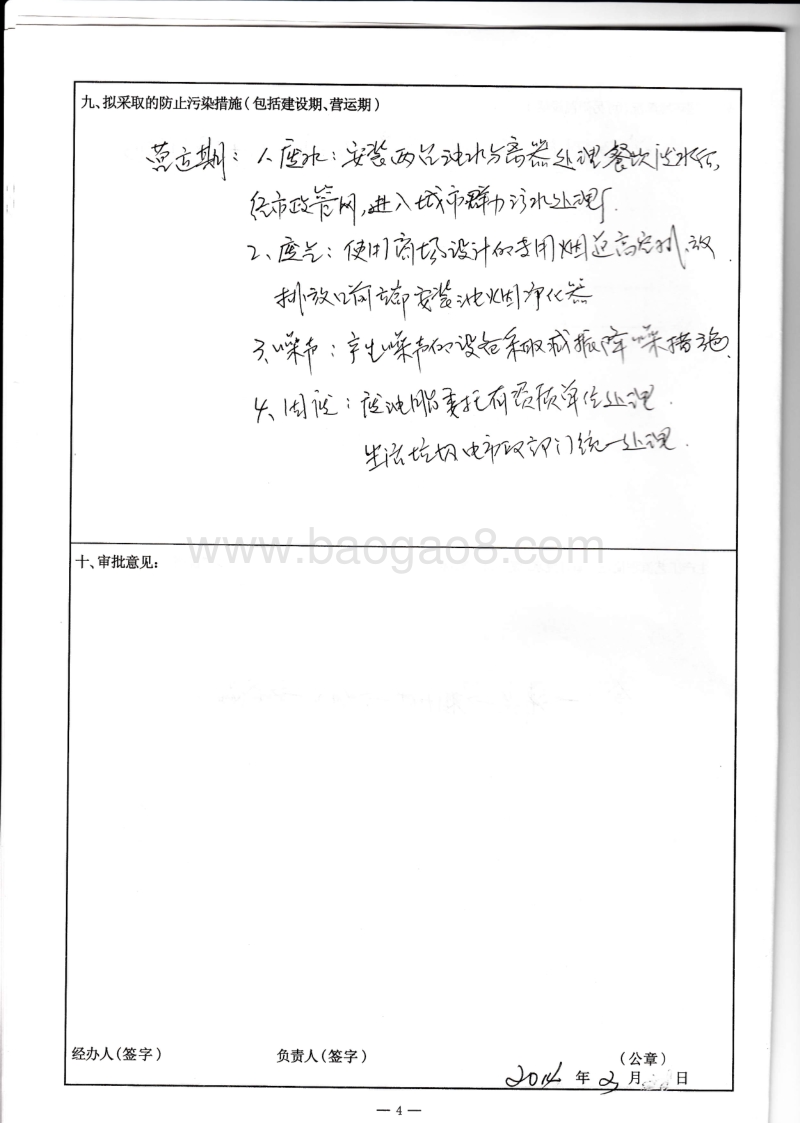 九、拟采取的防止污染措施(包括建设期、营运期)
营运期：1、废水：安装两台油水分离器处理餐饮废水后,
经市政管网,进入城市群力污水处理厂.
2、废气：使用商场设计的专用烟道高空排放.
排放口前端安装油烟净化器
3、噪声：产生噪声的设备采取减振降噪措施.
4、固废：废油脂委托有资质单位处理.
生活垃圾由市政部门统一处理.
www.baogao8.com
十、审批意见:
经办人(签字) 负责人(签字) (公章)
2014 年 2 月 日
— 4 —